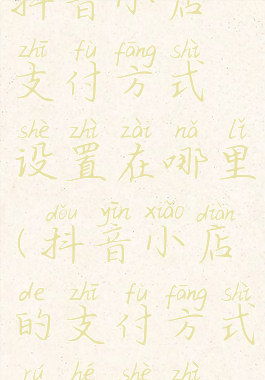 抖音小店
zhī fù fāng shì
支付方式
shè zhì zài nǎ lǐ
设置在哪里
dǒu yīn xiǎo diàn
(抖音小店
de zhī fù fāng shì
的支付方式
rú hé shè zhì